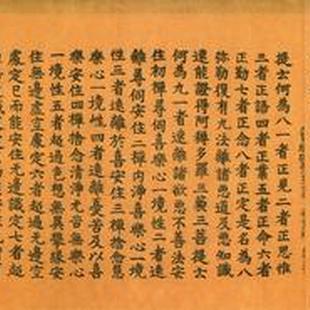 提士何為八一者正見二者正思惟
三者正語四者正業五者正命六者
正勤七者正念八者正定是名為八
弥勒復有九法離諸惡道及惡知識
速能證得阿耨多羅三藐三菩提士
何為九一者遠離諸欲惡不善法安
住初禪尋伺喜樂心一境性二者遠
離尋伺安住二禪内淨喜樂心一境
性三者遠離於喜安住三禪捨念慧
樂心一境性四者遠離憂苦及以喜
樂安住四禪捨念清淨无苦無樂心
一境性五者超過色想無異攀緣安
住無邊虛空處定六者超過无邊空
處定已而能安住无邊識定七者超